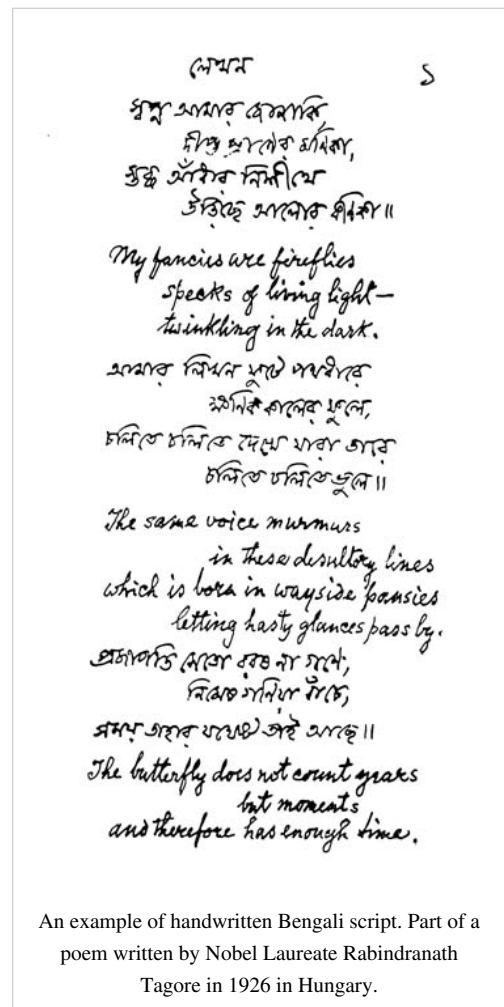 লেখন ১
স্বপ্ন আমার জোনাকি,
দীপ্ত প্রাণের মণিকা,
স্তব্ধ আঁধার নিশীথে
উড়িছে আলোর কণিকা॥
My fancies are fireflies
specks of living light—
twinkling in the dark.
আমার লিখন ফুটে পথধারে
ক্ষণিক কালের ফুলে,
চলিতে চলিতে দেখে যারা তারে
চলিতে চলিতে ভুলে॥
The same voice murmurs
in these desultory lines
which is born in wayside pansies
letting hasty glances pass by.
প্রজাপতি সেতো বরষ না গণে,
নিমেষ গণিয়া বাঁচে,
সময় তাহার যথেষ্ট তাই আছে॥
The butterfly does not count years
but moments
and therefore has enough time.
An example of handwritten Bengali script. Part of a
poem written by Nobel Laureate Rabindranath
Tagore in 1926 in Hungary.